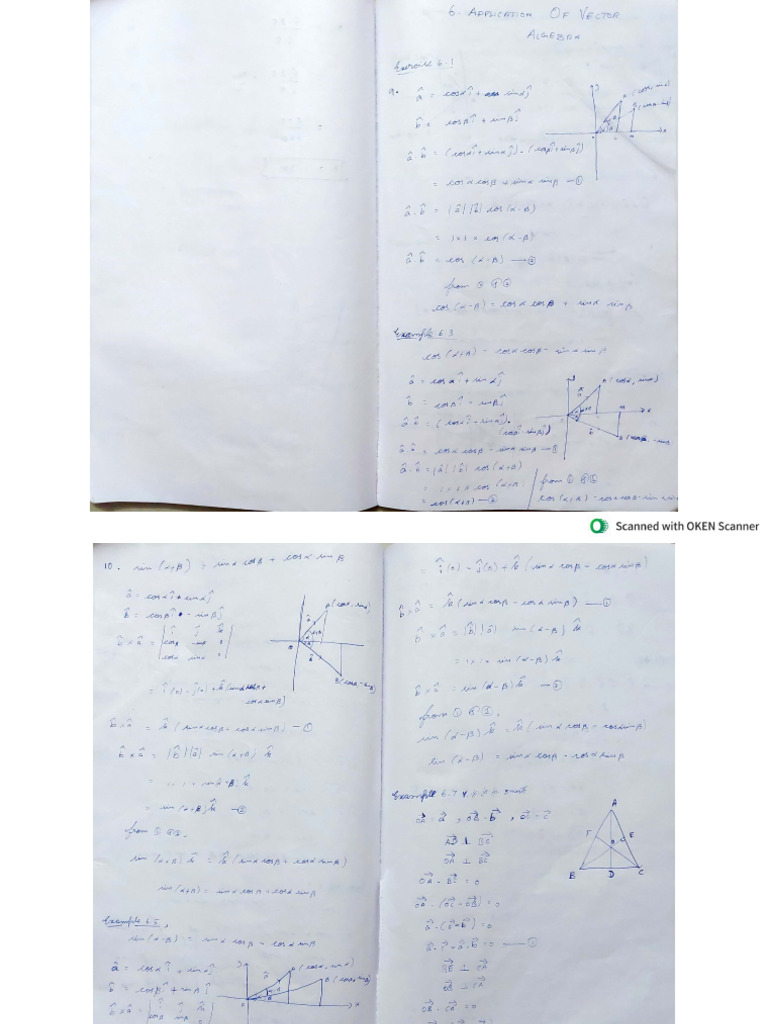 6. APPLICATION OF VECTOR
ALGEBRA
Exercise 6.1
9. â = cosα î + sinα ĵ
b̂ = cosβ î + sinβ ĵ
â·b̂ = (cosα î + sinα ĵ)·(cosβ î + sinβ ĵ)
= cosα cosβ + sinα sinβ —①
â·b̂ = |â| |b̂| cos(α-β)
= 1×1× cos(α-β)
â·b̂ = cos(α-β) —②
from ① & ②
cos(α-β) = cosα cosβ + sinα sinβ
Example 6.3
cos(α+β) = cosα cosβ - sinα sinβ
â = cosα î + sinα ĵ
b̂ = cosβ î - sinβ ĵ
(cosβ î - sinβ ĵ)
â·b̂ = cosα cosβ - sinα sinβ —①
â·b̂ = |â| |b̂| cos(α+β)
= 1×1× cos(α+β)
= cos(α+β) —②
from ① & ②
cos(α+β) = cosα cosβ - sinα sinβ
Scanned with OKEN Scanner
10. sin(α+β) = sinα cosβ + cosα sinβ
â = cosα î + sinα ĵ
b̂ = cosβ î - sinβ ĵ
b̂×â = | î ĵ k̂
cosβ -sinβ 0
cosα sinα 0 |
= î(0) - ĵ(0) + k̂(sinα cosβ +
cosα sinβ)
b̂×â = k̂(sinα cosβ - cosα sinβ) —①
b̂×â = |b̂| |â| sin(α+β) k̂
= 1×1× sin α+β k̂
= sin(α+β) k̂ —②
from ① & ②,
sin(α+β) k̂ = k̂(sinα cosβ + cosα sinβ)
sin(α+β) = sinα cosβ + cosα sinβ
Example 6.5
sin(α-β) = sinα cosβ - cosα sinβ
â = cosα î + sinα ĵ
b̂ = cosβ î + sinβ ĵ
b̂×â = | î ĵ k̂
cosβ sinβ 0
= î(0) - ĵ(0) + k̂(sinα cosβ - cosα sinβ)
b̂×â = k̂(sinα cosβ - cosα sinβ) —①
b̂×â = |b̂| |â| sin(α-β) k̂
= 1×1× sin(α-β) k̂
b̂×â = sin(α-β) k̂ —②
from ① & ②,
sin(α-β) k̂ = k̂(sinα cosβ - cosα sinβ)
sin(α-β) = sinα cosβ - cosα sinβ
Example 6.7
OA = a, OB = b, OC = c
AD ⊥ BC
OA ⊥ BC
OA · BC = 0
OA · (OC - OB) = 0
A
F
E
O
B
D
C
OB ⊥ CA
OB · CA = 0